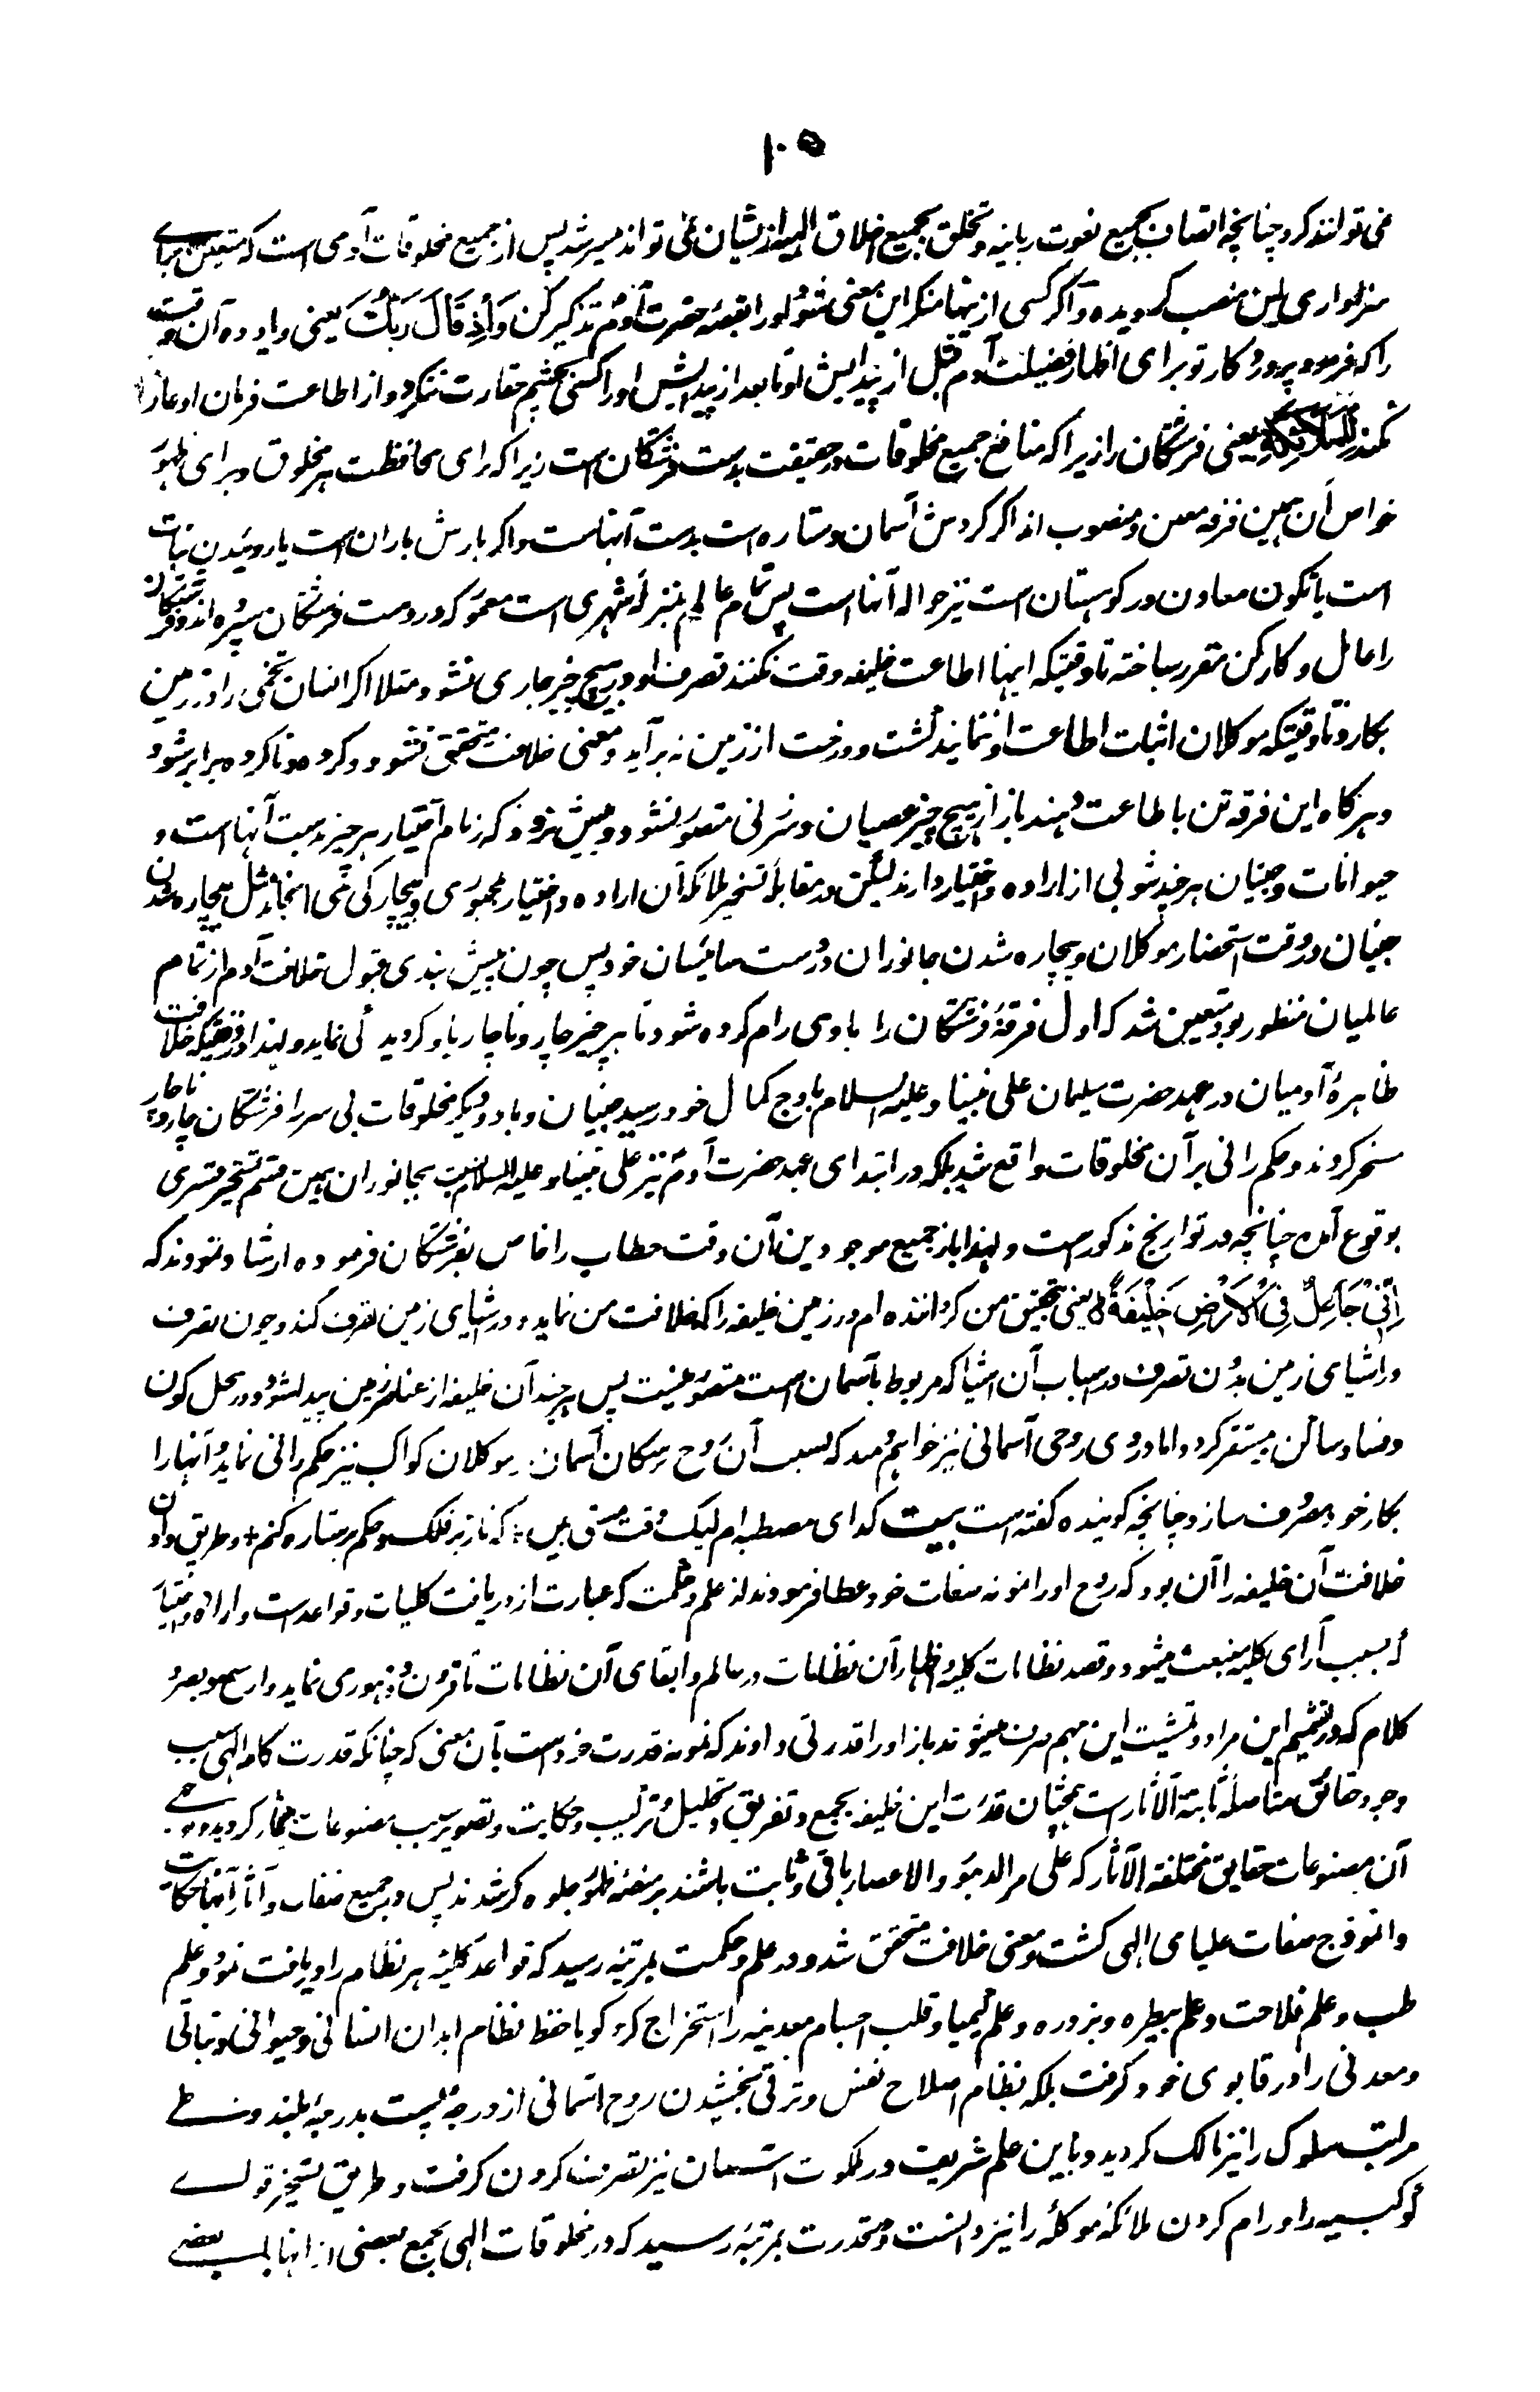 ۱۰۵
نمی توانند کرد چنانچه اتصاف بجمیع نعوت ربانیه و تخلق بجمیع اخلاق الهیه از ایشان نمی تواند میسر شد پس از جمیع مخلوقات آدمی است که متعین برای
سزاواری این منصب گردیده و اگر کسی از اینها منکر این معنی شود او را بقصه حضرت آدم تذکیر کن وَاِذْ قَالَ رَبُّكَ یعنی و یاد ده آن وقت
را که فرمود پروردکار تو برای اظهار فضیلت آدم قبل از پیدایش او تا بعد از پیدایش او را کسی بچشم حقارت ننکرد و از اطاعت فرمان او عار
نکند لِلْمَلٰئِكَةِ یعنی فرشتکان را زیرا که منافع جمیع مخلوقات در حقیقت بدست فرشتکان است زیرا که برای محافظت هر مخلوق و برای ظهور
خواص آن همین فرقه معین و منصوب اند اگر کردش آسمان و ستاره است بدست آنهاست و اکر بارش باران است یا روئیدن نبات
است یا تکون معادن در کوهستان است نیز حواله آنها است پس تمام عالم بمنزله شهری است معمور که در دست فرشتکان سپرده اند و فرشتکان
را عامل و کارکن مقرر ساخته تا وقتیکه اینها اطاعت خلیفه وقت نکنند تصرف او در هیچ چیز جاری نشود مثلا اکر انسان تخمی را در زمین
بکارد تا وقتیکه موکلان اثبات اطاعت او ننمایند کشت و درخت از زمین نه برآید و معنی خلافت متحقق نشود و کرده و ناکرده برابر شود
و هرکاه این فرقه تن باطاعت دهند باز از هیچ چیز عصیان و سرزنی متصور نشود و پیش نرود که زمام اختیار هر چیز بدست آنها است و
حیوانات و جنیان هر چند شوبی از اراده و اختیار دارند لیکن در مقابله تسخیر ملائکه آن اراده و اختیار بمجبوری و بیچارکی می انجامد مثل بیچاره شدن
جنیان در وقت استحضار موکلان و بیچاره شدن جانوران در دست سائیسان خود پس چون پیش بندی قبول خلافت آدم از تمام
عالمیان منظور بود متعین شد که اول فرقه فرشتکان را با وی رام کرده شود تا هر چیز چار و ناچار باو کرویدکی نماید و لهذا وقتیکه خلافت
ظاهرهٔ آدمیان در عهد حضرت سلیمان علی نبینا و علیه السلام باوج کمال خود رسید جنیان و باد و دیکر مخلوقات بی سر را فرشتکان چار و ناچار
مسخر کردند و حکم رانی بر آن مخلوقات واقع شد بلکه در ابتدای عهد حضرت آدم نیز علی نبینا و علیه السلام نسبت بجانوران همین قسم تسخیر قسری
بوقوع آمده چنانچه در تواریخ مذکور است و لهذا از جمیع موجودین آن وقت خطاب را خاص بفرشتکان فرموده ارشاد نمودند که
اِنِّيْ جَاعِلٌ فِي الْاَرْضِ خَلِيْفَةً یعنی بتحقیق من کرداننده ام در زمین خلیفه را که خلافت من نماید و در اشیای زمین تصرف کند و چون تصرف
در اشیای زمین بدون تصرف در اسباب آن اشیا که مربوط بآسمان است متصور نیست پس هر چند آن خلیفه از عناصر زمین پیدا شود و در محل کون
و فساد ساکن و مستقر کردد اما در وی روحی آسمانی نیز خواهم دمید که بسبب آن روح بر سکان آسمان و موکلان کواکب نیز حکم رانی نماید و آنها را
بکار خود مصروف سازد چنانچه کوینده کفته است بیت کدای مصطبه ام لیک وقت مستی بین ÷ که ناز بر فلک و حکم بر ستاره کنم + و طریق دادن
خلافت آن خلیفه را آن بود که روح او را نمونه صفات خود عطا فرمودند از علم و حکمت که عبارت از دریافت کلیات و قواعد است و اراده و اختیار
بسبب آرای کلیه منبعث میشود و قصد نظامات کلیه و اظهار آن نظامات در عالم و ابقای آن نظامات تا قرون و دهور می نماید و از سمع و بصر و
کلام که در تتمیم این مراد و تمشیت این مهم صرف میشوند باز او را قدرتی دادند که نمونه قدرت خود است بآن معنی که چنانکه قدرت کامله الهی سبب
وجود حقائق متاصله ثابتة الآثار است همچنان قدرت این خلیفه بجمع و تفریق و تحلیل و ترکیب و حکایت و تصویر سبب مصنوعات بیشمار کردید
آن مصنوعات حقایق مختلفة الآثار که علی مر الدهور و الاعصار باقی و ثابت باشند بر منصه ظهور جلوه کر شدند پس در جمیع صفات و آثار آنها حکایت
و انموذج صفات علیای الهی کشت و معنی خلافت متحقق شد و در علم و حکمت بمرتبه رسید که قواعد کلیه هر نظام را دریافت نمود و علم
طب و علم فلاحت و علم بیطره و بزدره و علم کیمیا و قلب اجسام معدنیه را استخراج کرد کویا حفظ نظام ابدان انسانی و حیوانی و نباتی
و معدنی را در قابوی خود کرفت بلکه نظام اصلاح نفس و ترقی بخشیدن روح انسانی از درجهٔ پست بدرجهٔ بلند و طی
مراتب سلوک را نیز مالک کردید و باین علم شریعت در ملکوت آسمان نیز تصرف کردن کرفت و طریق تسخیر قوای
کوکبیه را و رام کردن ملائکه موکله را نیز دانست و قدرت بمرتبه رسید که در مخلوقات الهی بجمع بعضی از انها ببعضی